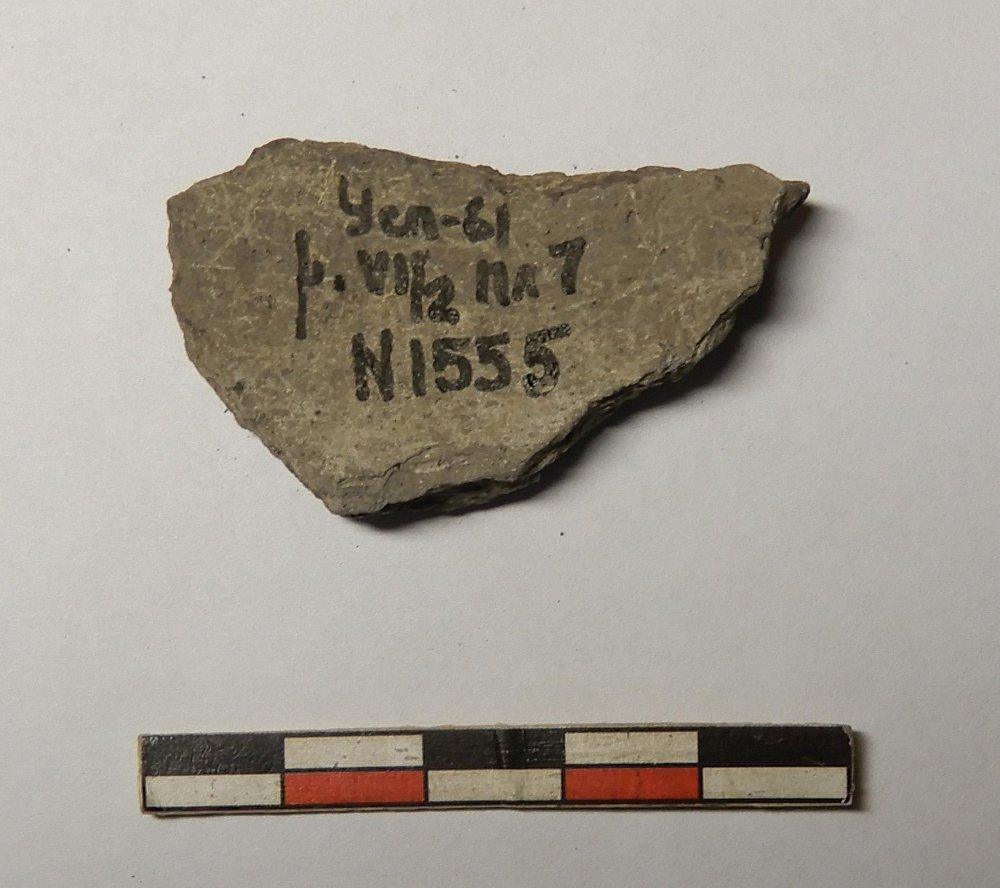 Усп-61
р. VII/2 пл 7
N1555